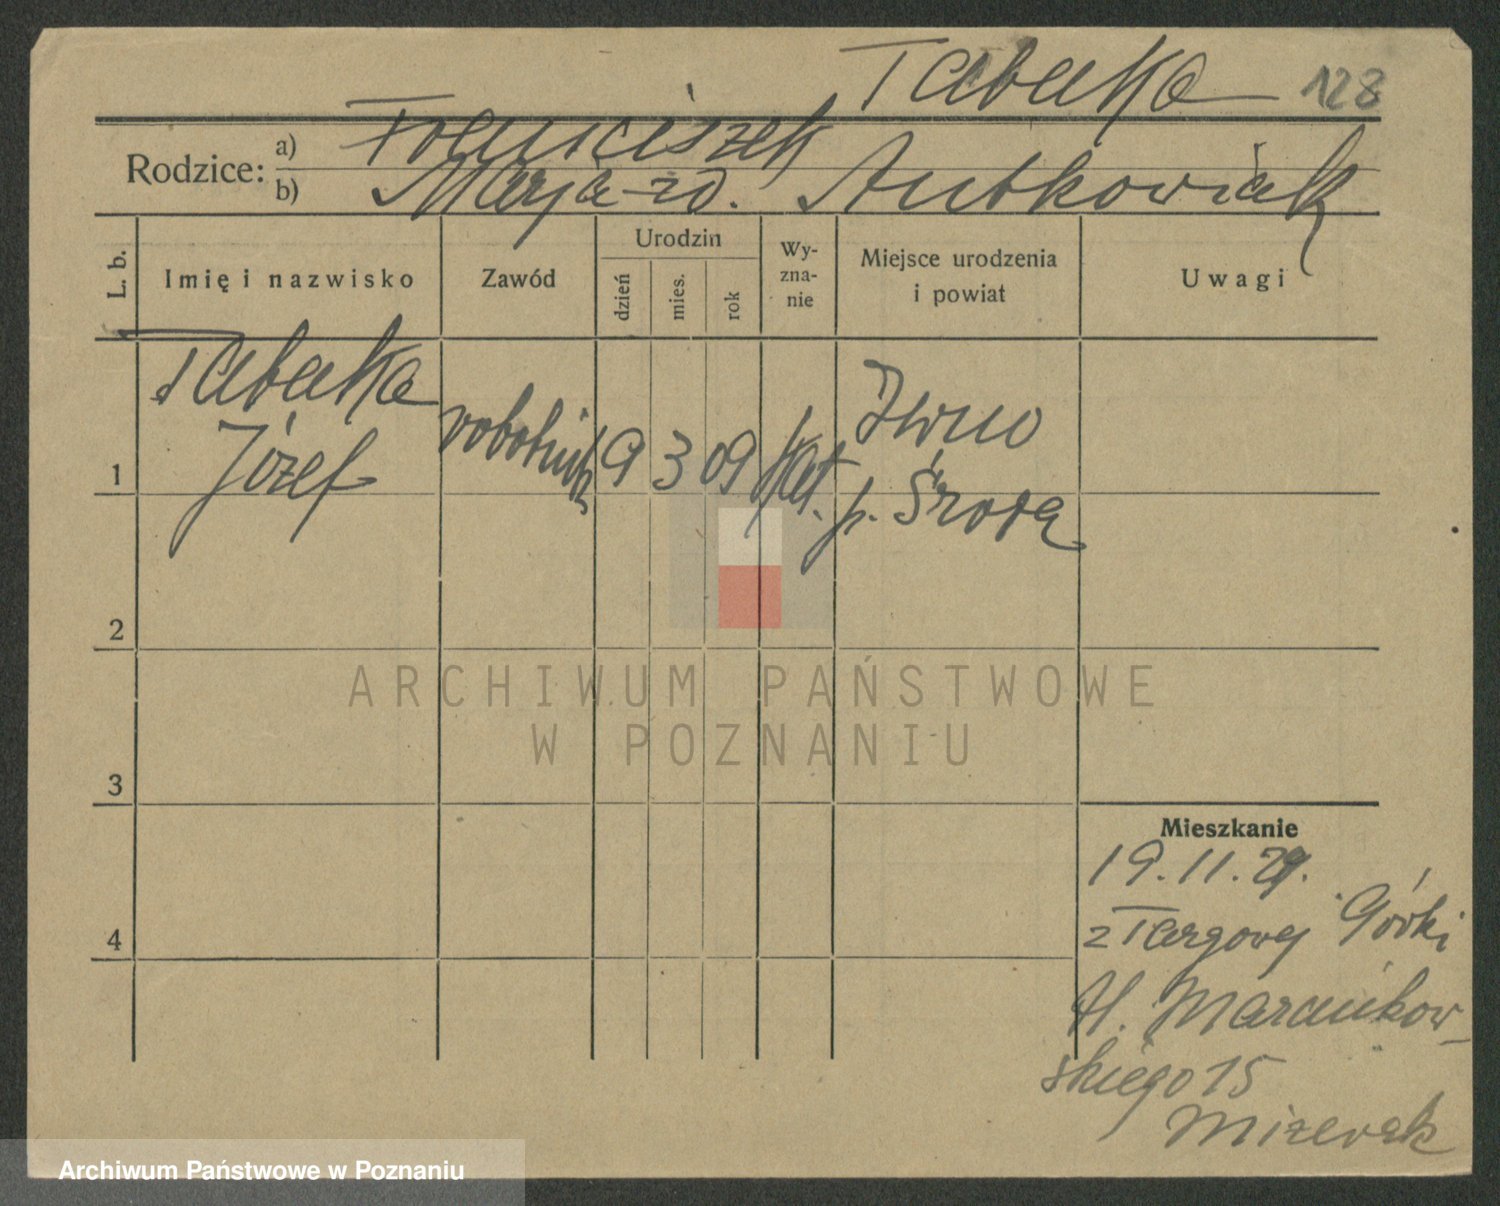 Tabaka 128
Rodzice: a) Franciszek
b) Marja zd. Antkowiak
L. b.
Imię i nazwisko
Zawód
Urodzin
dzień
mies.
rok
Wy-
zna-
nie
Miejsce urodzenia
i powiat
Uwagi
1
Tabaka
Józef
robotnik
9
3
09
kat.
Iwno
p. Środa
2
3
4
ARCHIWUM PAŃSTWOWE
W POZNANIU
Mieszkanie
19.11.29.
z Targowej Górki
Al. Marcinkow-
skiego 15
Mizerak
Archiwum Państwowe w Poznaniu